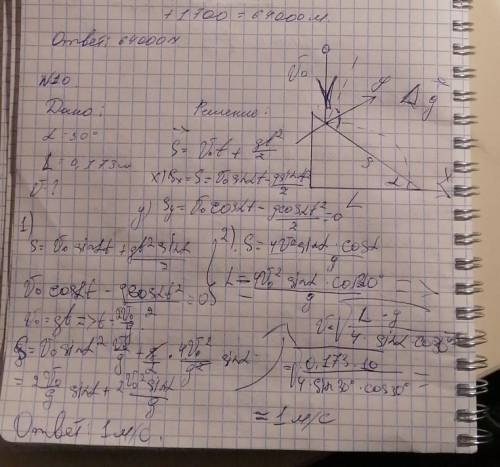 +1700 = 64000м.
Ответ: 64000м
N10.
Дано:
Решение:
α = 30°
L = 0,173м
V-?
S = V₀t + gt²/2
x) Sx = S = V₀sinαt + gsinαt²/2
y) Sy = V₀cosαt - gcosαt²/2 = 0
1)
S = V₀sinαt + gt² sinα/2
V₀cosαt - gcosαt²/2 = 0
V₀ = gt => t = 2V₀/g
S = V₀sinα 2V₀/g + g/2 · 4V₀²/g² sinα =
= 2V₀²/g sinα + 2V₀² sinα/g
2) S = 4V₀² sinα · cosα/g
L = 4V₀² sinα · cos30°/g =>
V₀ = √L · g/4 · sinα cos30° =
= √0,173 · 10/4 · sin30° · cos30° =
≈ 1 м/с
Ответ: 1 м/с.
V₀
y
g
S
α
L
X